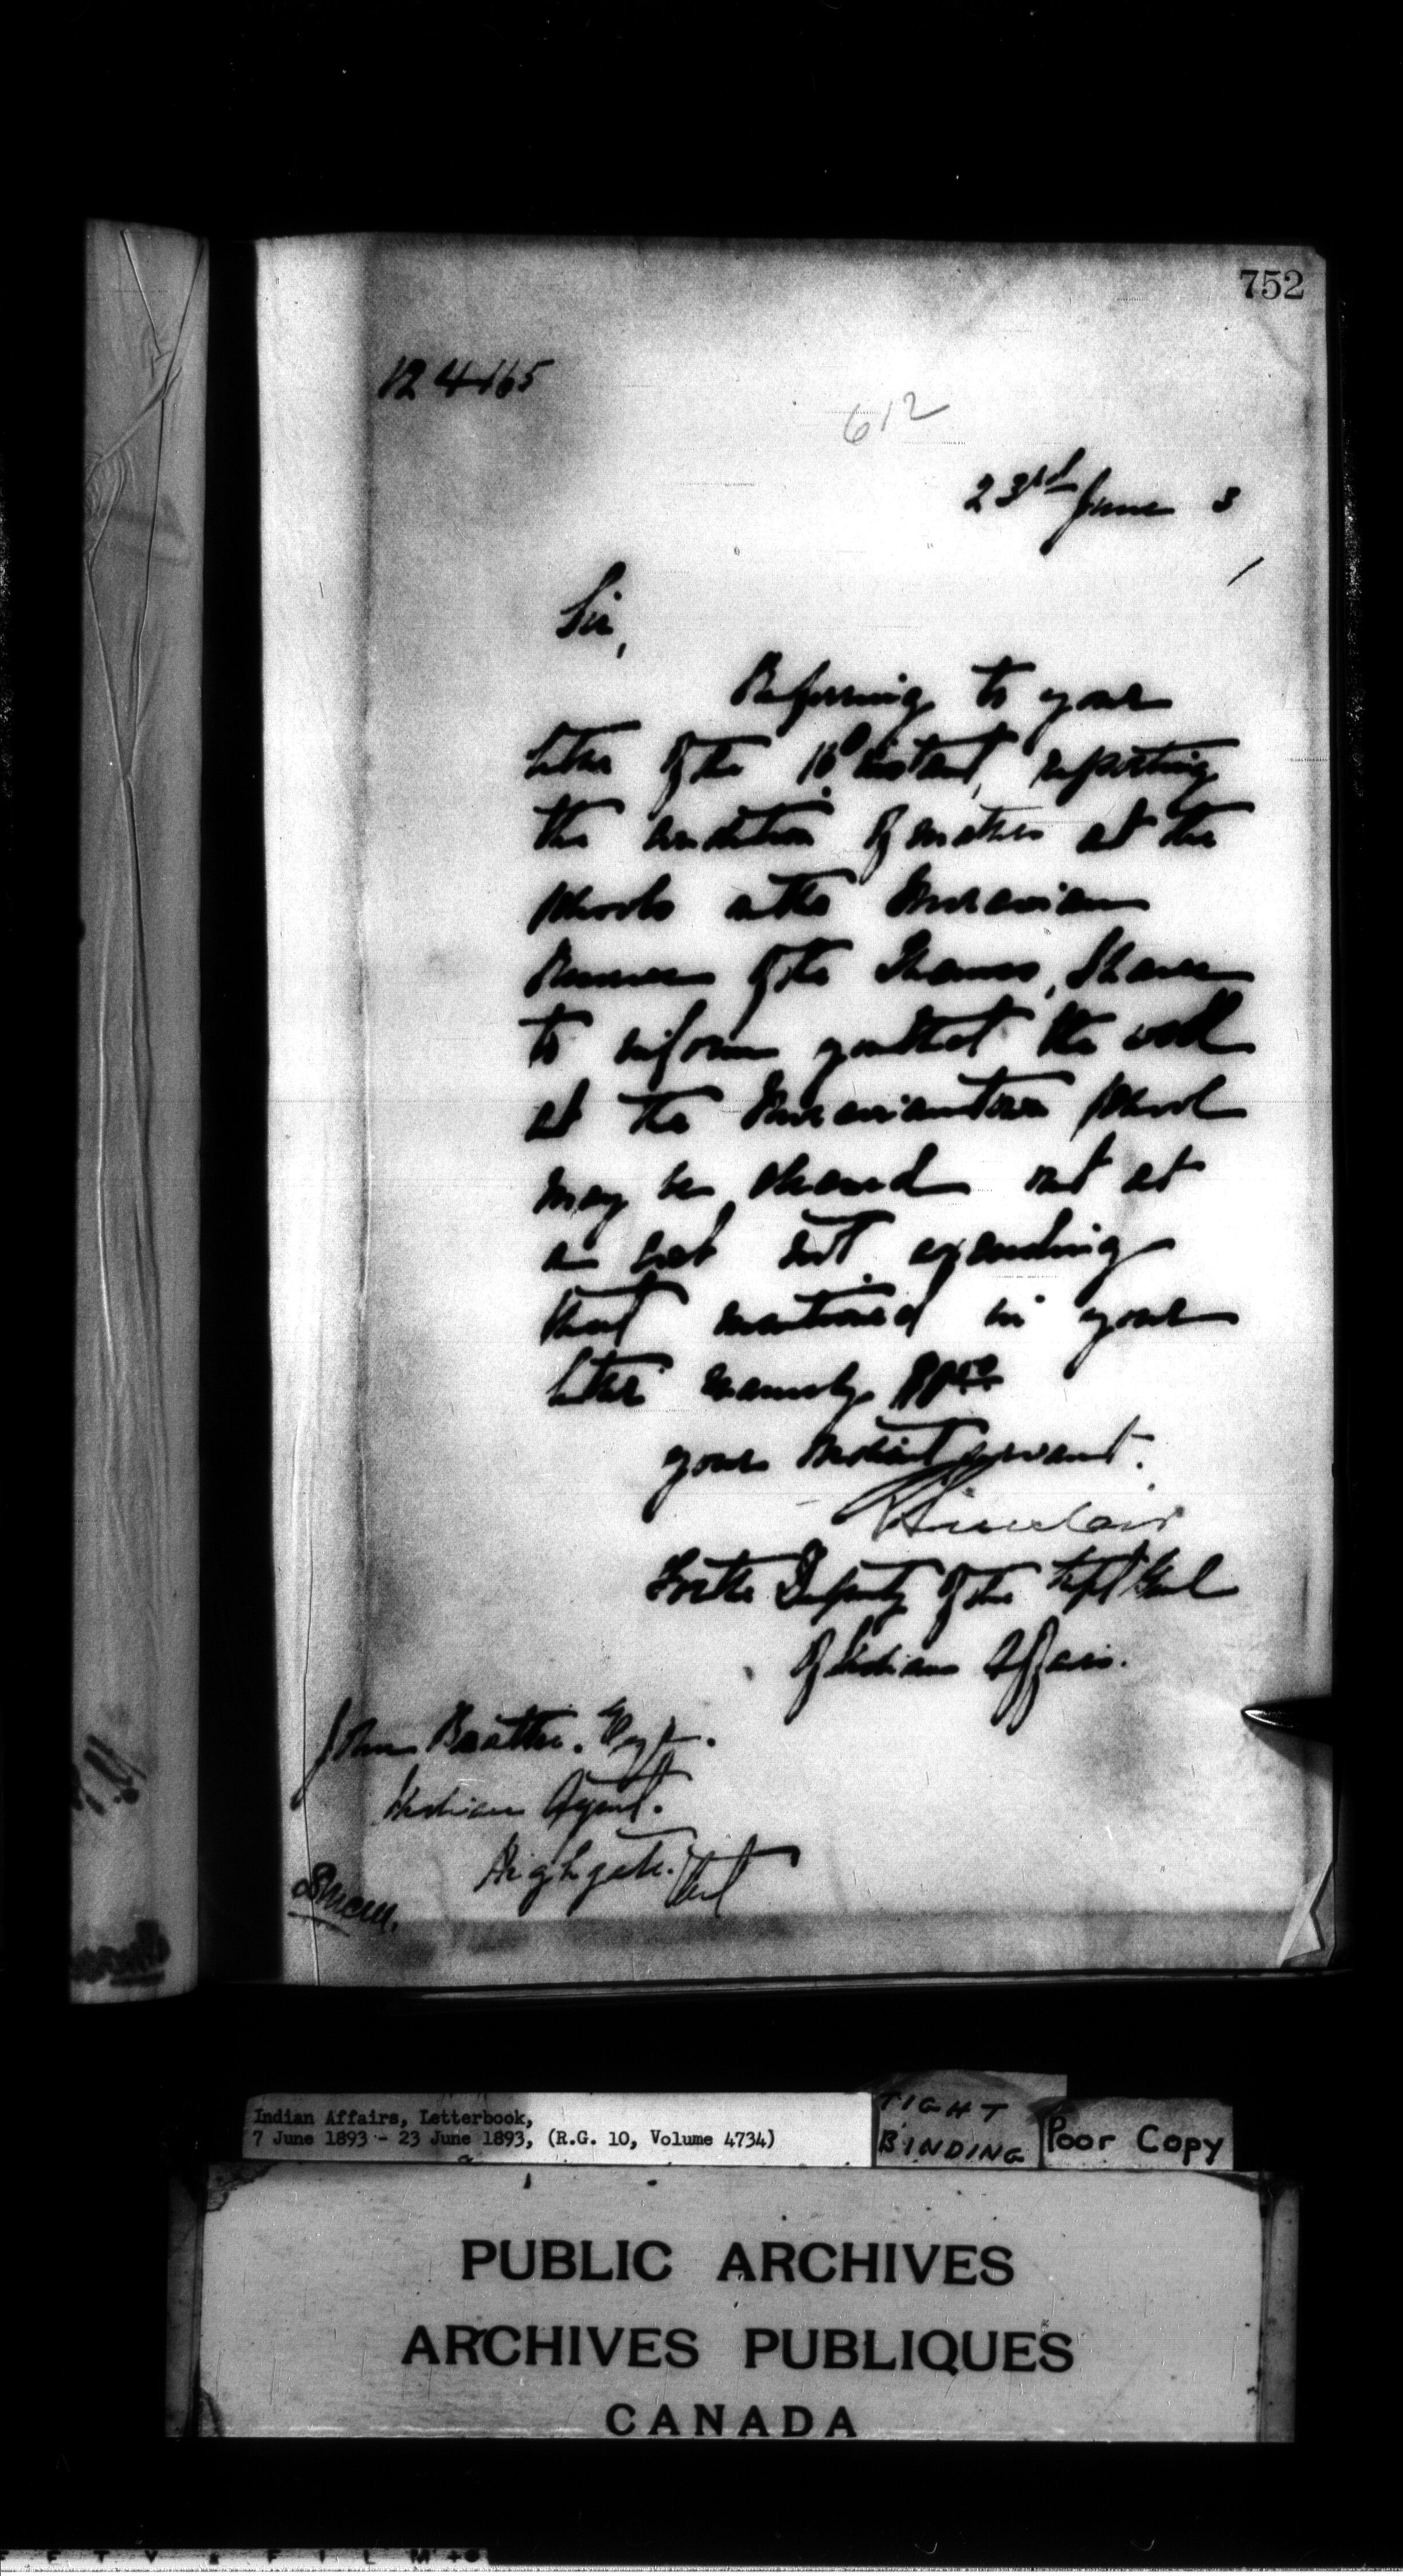 752
124165
612
23rd June 3
Sir,
Referring to your
letter of the 10th instant, reporting
the condition of matters at the
schools on the Moravian
Reserve of the Thames, I have
to inform you that the well
at the Moraviantown school
may be cleaned out at
a cost not exceeding
that mentioned in your
letter namely
your obedient servant.
Sinclair
For the Deputy of the Supt Genl
of Indian Affairs.
John Beattie. Esqr.
Indian Agent.
Highgate. Ont
Indian Affairs, Letterbook,
7 June 1893 - 23 June 1893, (R.G. 10, Volume 4734)
TIGHT
BINDING
Poor Copy
PUBLIC ARCHIVES
ARCHIVES PUBLIQUES
CANADA